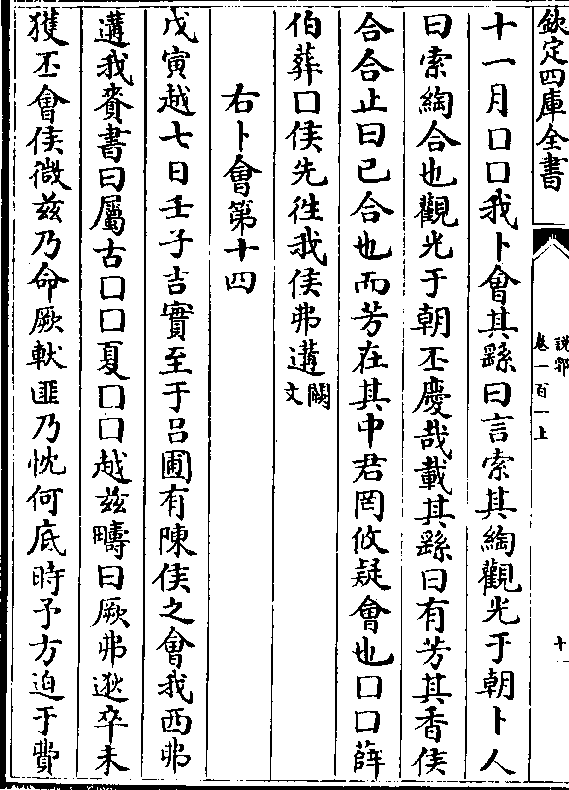 欽定四庫全書
說郛
卷一百一上
十一
十一月口口我卜會其繇曰言索其綯觀光于朝卜人
曰索綯合也觀光于朝丕慶哉載其繇曰有芳其香侯
合合止曰已合也而芳在其中君罔攸疑會也口口薛
伯葬口侯先徃我侯弗遘闕文
右卜會第十四
戊寅越七日壬子吉實至于吕圃有陳侯之會我西弗
遘我賚書曰屬古口口夏口口越兹疇曰厥弗逖卒未
獲丕會侯微兹乃命厥猷匪乃忱何底時予方迫于費